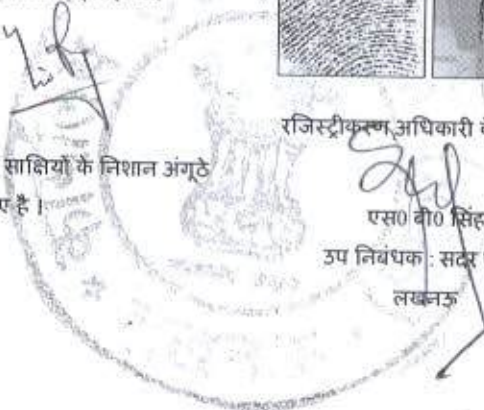 रजिस्ट्रीकरण अधिकारी
साक्षियों के निशान अंगूठे
ए है ।
एस0 बी0 सिंह
उप निबंधक : सदर
लखनऊ